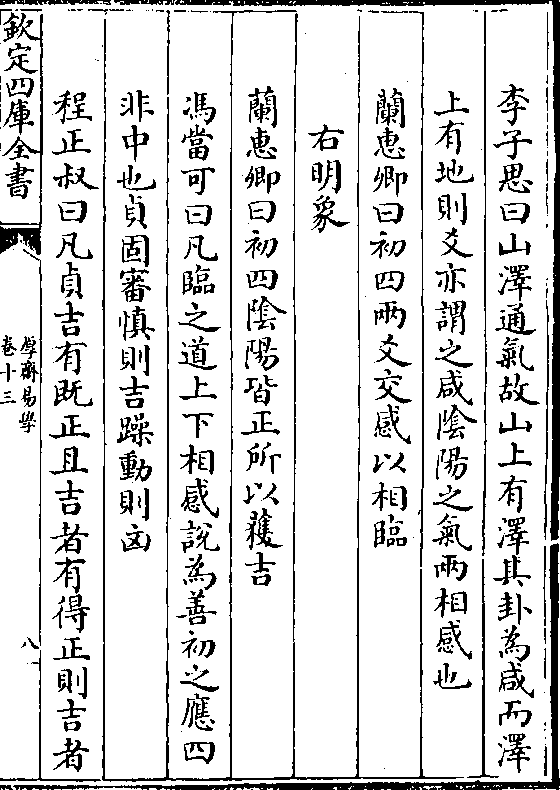 李子思曰山澤通氣故山上有澤其卦為咸而澤
上有地則爻亦謂之咸陰陽之氣兩相感也
蘭惠卿曰初四兩爻交感以相臨
右明象
蘭惠卿曰初四陰陽皆正所以獲吉
馮當可曰凡臨之道上下相感說為善初之應四
非中也貞固審慎則吉躁動則凶
程正叔曰凡貞吉有既正且吉者有得正則吉者
欽定四庫全書
厚齋易學
卷十三
八